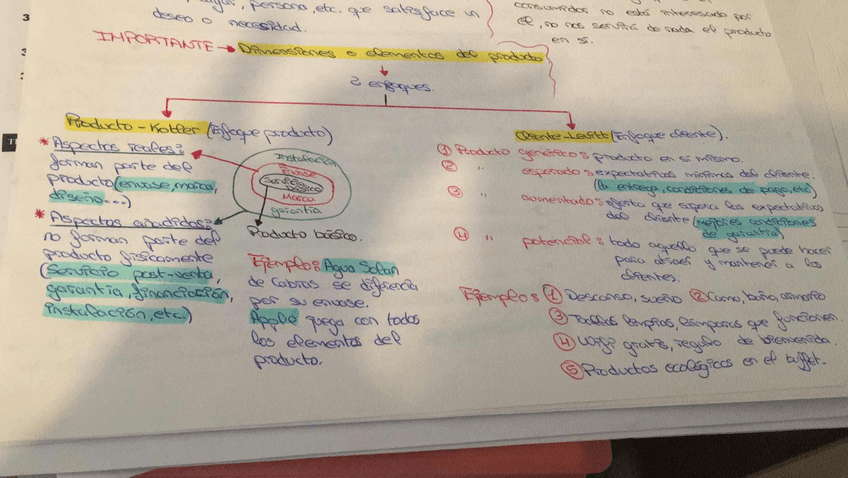 persona, etc. que satisface un
deseo o necesidad.
consumidor no está interesado por
el, no nos servirá de nada el producto
en sí.
IMPORTANTE → Dimensiones o elementos del producto
2 enfoques
Producto - Kotler (Enfoque producto)
* Aspectos reales:
forman parte del
producto (envase, marca,
diseño...)
* Aspectos añadidos:
no forman parte del
producto físicamente
(Servicio post-venta,
garantía, financiación,
instalación, etc)
Instalación
Envase
Servicio
básico
Marca
garantía
Producto básico.
Ejemplo: Agua Solan
de Cabras se diferencia
por su envase.
Apple juega con todos
los elementos del
producto.
Cliente-Levitt (Enfoque cliente).
① Producto genérico: producto en si mismo.
② " esperado: expectativas mínimas del cliente.
(la entrega, condiciones de pago, etc)
③ " aumentado: oferta que supera las expectativas
del cliente (mejores condiciones
de garantía)
④ " potencial: todo aquello que se puede hacer
para atraer y mantener a los
clientes.
Ejemplo: ① Descanso, sueño ② Cama, baño, armario
③ Toallas limpias, lámparas que funcionen.
④ Wifi gratis, regalo de bienvenida.
⑤ Productos ecológicos en el buffet.